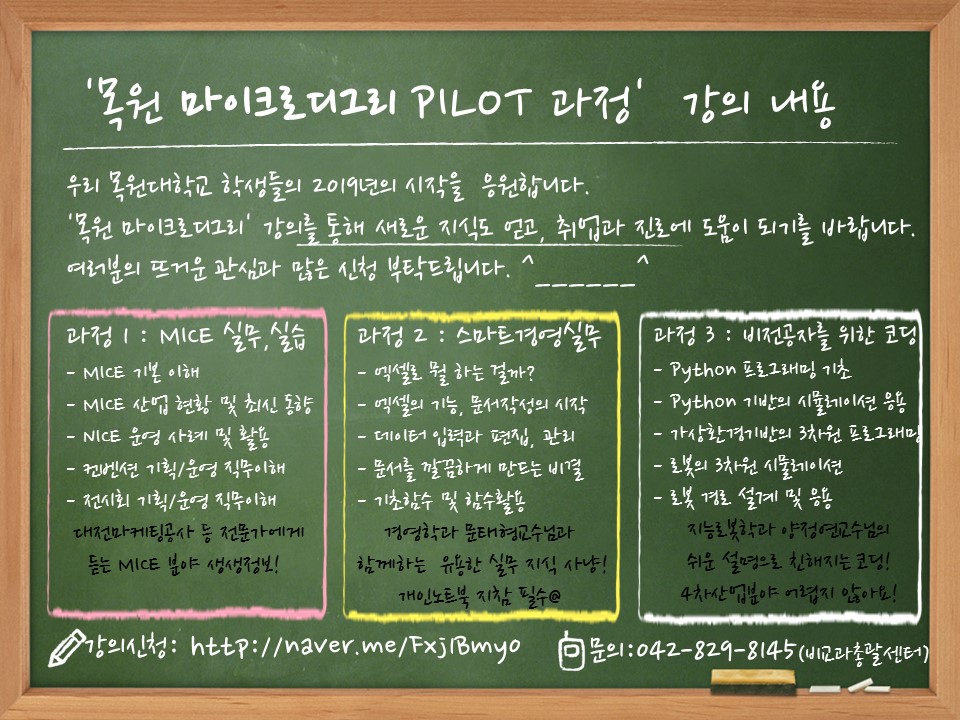 '목원 마이크로디그리 PILOT 과정' 강의 내용
우리 목원대학교 학생들의 2019년의 시작을 응원합니다.
'목원 마이크로디그리' 강의를 통해 새로운 지식도 얻고, 취업과 진로에 도움이 되기를 바랍니다.
여러분의 뜨거운 관심과 많은 신청 부탁드립니다. ^______^
과정 1 : MICE 실무,실습
- MICE 기본 이해
- MICE 산업 현황 및 최신 동향
- NICE 운영 사례 및 활용
- 컨벤션 기획/운영 직무이해
- 전시회 기획/운영 직무이해
대전마케팅공사 등 전문가에게
듣는 MICE 분야 생생정보!
과정 2 : 스마트경영실무
- 엑셀로 뭘 하는 걸까?
- 엑셀의 기능, 문서작성의 시작
- 데이터 입력과 편집, 관리
- 문서를 깔끔하게 만드는 비결
- 기초함수 및 함수활용
경영학과 문태형교수님과
함께하는 유용한 실무 지식 사냥!
개인노트북 지참 필수@
과정 3 : 비전공자를 위한 코딩
- Python 프로그래밍 기초
- Python 기반의 시뮬레이션 응용
- 가상환경기반의 3차원 프로그래밍
- 로봇의 3차원 시뮬레이션
- 로봇 경로 설계 및 응용
지능로봇학과 양정연교수님의
쉬운 설명으로 친해지는 코딩!
4차산업분야 어렵지 않아요!
강의신청: http://naver.me/FxjIBmyo
문의:042-829-8145(비교과총괄센터)